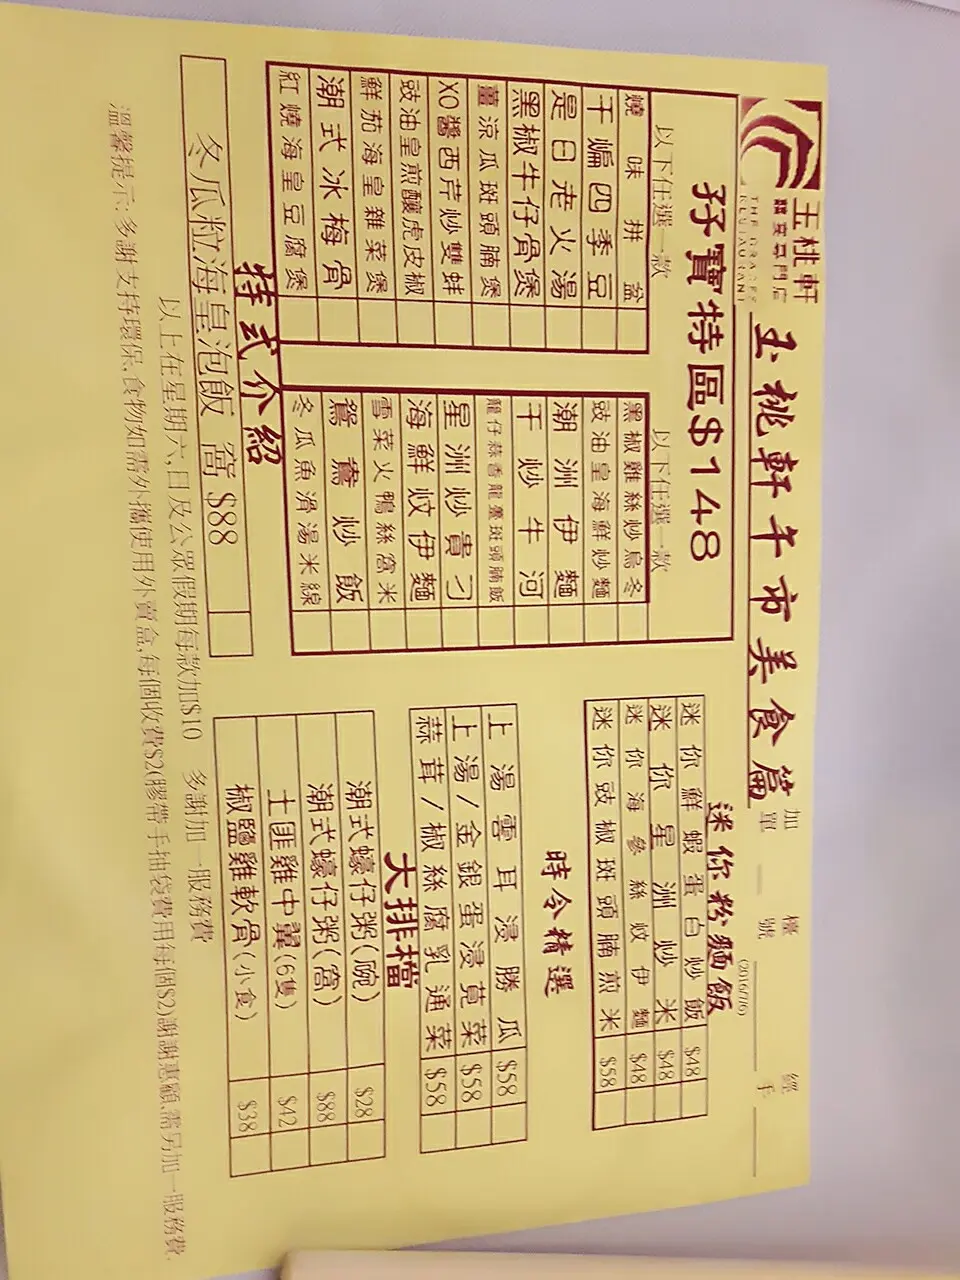 玉桃軒
宴專門店
THE GRACES
RESTAURANT
玉桃軒午市美食篇
加單
檯號
經手
(2016/7/6)
孖寶特區$148
以下任選一款
燒味拼盆
干煸四季豆
是日老火湯
黑椒牛仔骨煲
薑涼瓜斑頭腩煲
XO醬西芹炒雙蚌
豉油皇煎釀虎皮椒
鮮茄海皇雜菜煲
潮式冰梅骨
紅燒海皇豆腐煲
以下任選一款
黑椒雞絲炒烏冬
豉油皇海鮮炒麵
潮洲伊麵
干炒牛河
龍仔蒜香龍躉斑頭腩飯
星洲炒貴刁
海鮮炆伊麵
雪菜火鴨絲窩米
鴛鴦炒飯
冬瓜魚滑湯米線
特式介紹
冬瓜粒海皇泡飯 窩 $88
迷你粉麵飯
迷你鮮蝦蛋白炒飯 $48
迷你星洲炒米 $48
迷你海參絲炆伊麵 $48
迷你豉椒斑頭腩煎米 $58
時令精選
上湯雲耳浸勝瓜 $58
上湯/金銀蛋浸莧菜 $58
蒜茸/椒絲腐乳通菜 $58
大排檔
潮式蠔仔粥(碗) $28
潮式蠔仔粥(窩) $88
士匪雞中翼(6隻) $42
椒鹽雞軟骨(小食) $38
以上在星期六,日及公眾假期每款加$10 多謝加一服務費
溫馨提示:多謝支持環保,食物如需外攜使用外賣盒,每個收費$2(膠帶手抽袋費用每個$2)謝謝惠顧,需另加一服務費.